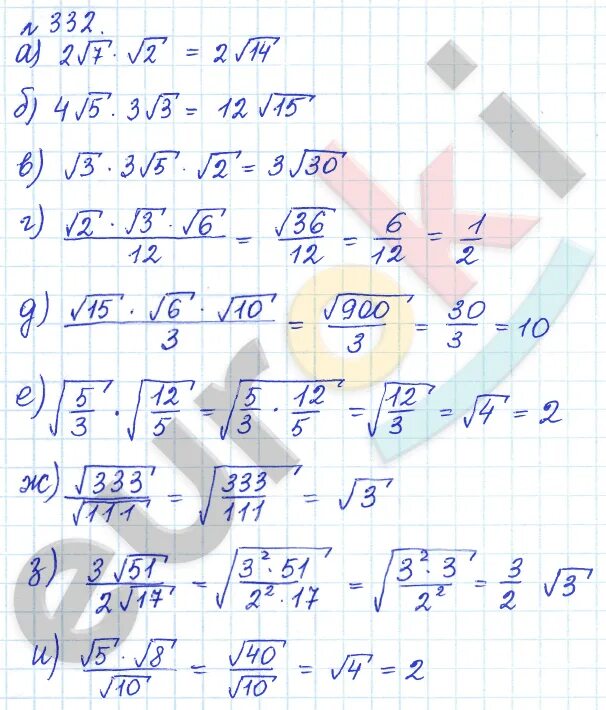 № 332.
а) 2√7 · √2 = 2√14
б) 4√5 · 3√3 = 12√15
в) √3 · 3√5 · √2 = 3√30
г) (√2 · √3 · √6)/12 = √36/12 = 6/12 = 1/2
д) (√15 · √6 · √10)/3 = √900/3 = 30/3 = 10
е) √(5/3) · √(12/5) = √(5/3 · 12/5) = √(12/3) = √4 = 2
ж) √333/√111 = √(333/111) = √3
з) 3√51/2√17 = √(3² · 51/2² · 17) = √(3² · 3/2²) = 3/2 √3
и) (√5 · √8)/√10 = √40/√10 = √4 = 2
euroki